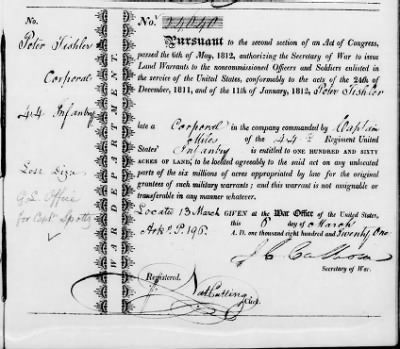 No.
Peter Tishler
Corporal
44 Infantry
G.L. Office
for Capt
WAR DEPARTMENT
No. 24040
PURSUANT to the second section of an Act of Congress,
passed the 6th of May, 1812, authorizing the Secretary of War to issue
Land Warrants to the noncommissioned Officers and Soldiers enlisted in
the service of the United States, conformably to the acts of the 24th of
December, 1811, and of the 11th of January, 1812, Peter Tishler
late a Corporal in the company commanded by Captain
Miles of the 44th Regiment United
States' Infantry is entitled to ONE HUNDRED AND SIXTY
ACRES OF LAND, to be located agreeably to the said act on any unlocated
parts of the six millions of acres appropriated by law for the original
grantees of such military warrants; and this warrant is not assignable or
transferable in any manner whatever.
Located 13 March GIVEN at the War Office of the United States,
Arks. P. 196. this 6 day of March
A. D. one thousand eight hundred and Twenty One
J C Calhoun
Secretary of War.
Registered.
Nat Cutting
Clk.